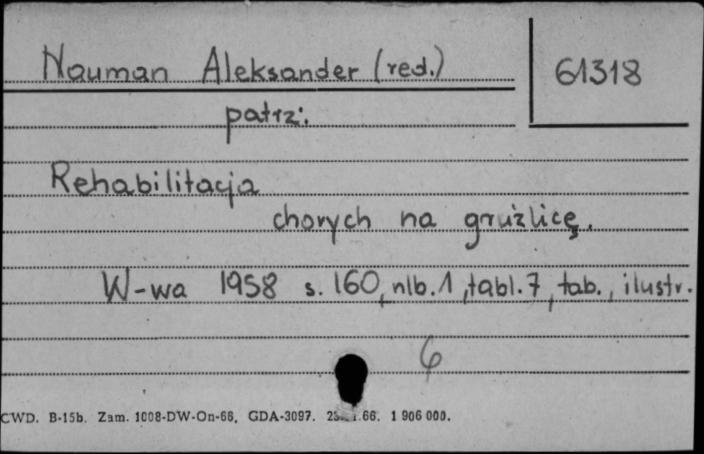 Nauman Aleksander (red.) 61318
patrz:
Rehabilitacja
chorych na gruźlicę.
W-wa 1958 s. 160, nlb. 1, tabl. 7, tab., ilustr.
CWD. B-15b. Zam. 1008-DW-On-66. GDA-3097. .66. 1 906 000.